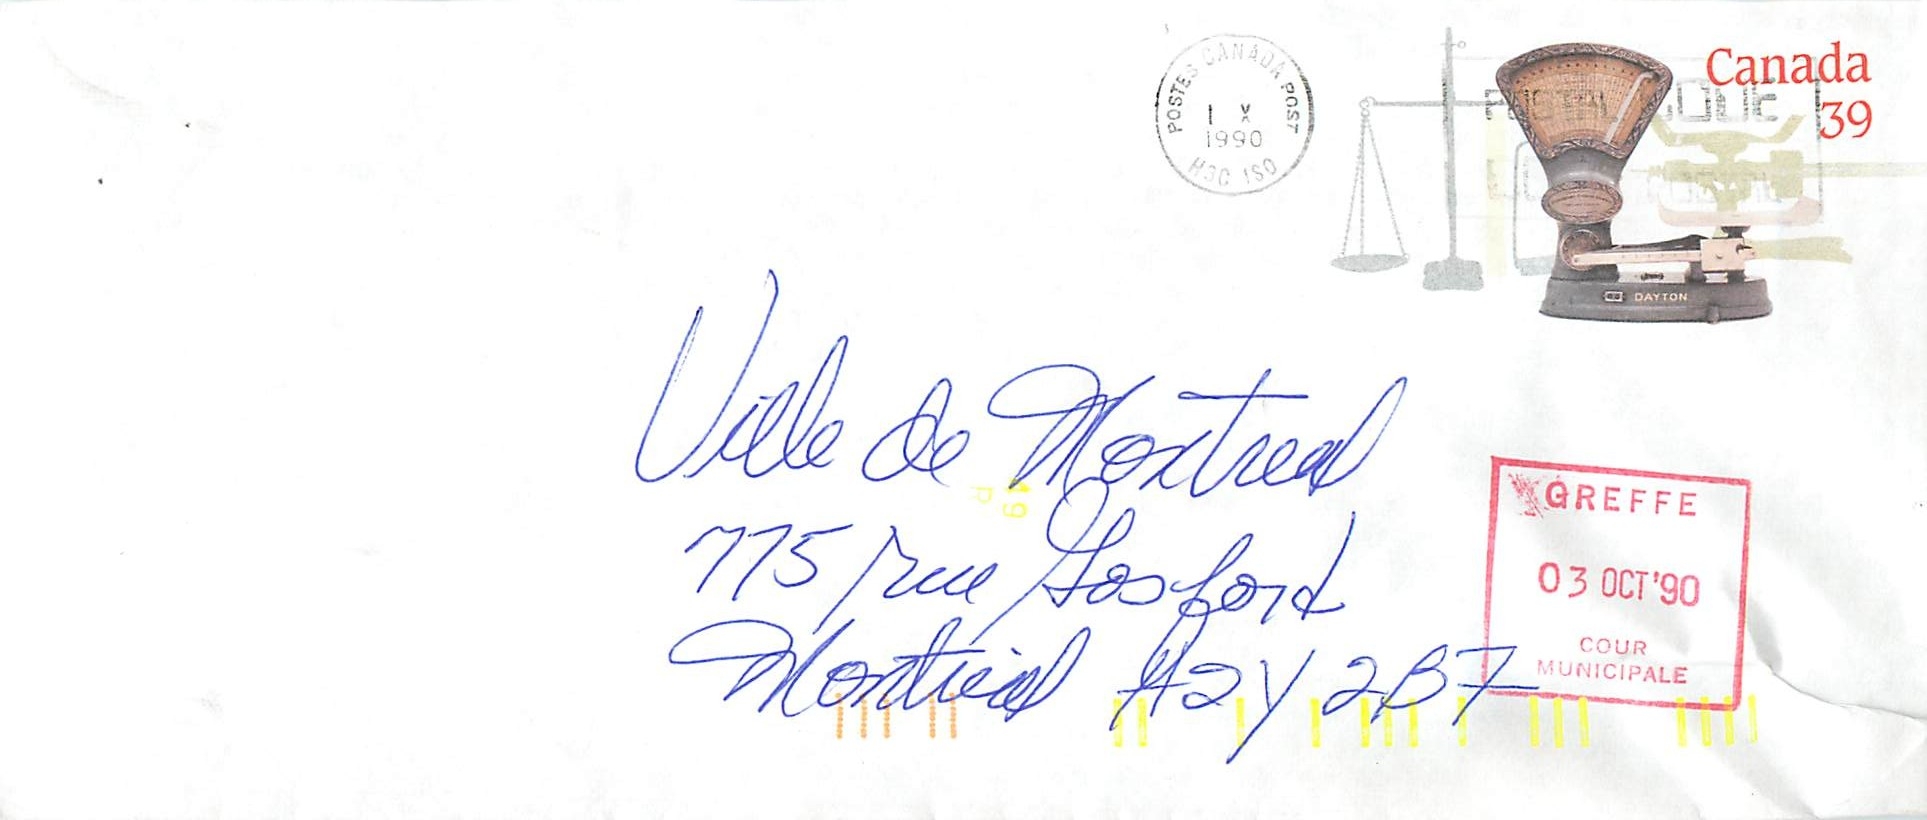 POSTES CANADA POST
1 X
1990
H3C 1S0
Canada
39
DAYTON
Ville de Montreal
775 rue Gosford
Montreal H2Y 2B7
GREFFE
03 OCT '90
COUR
MUNICIPALE